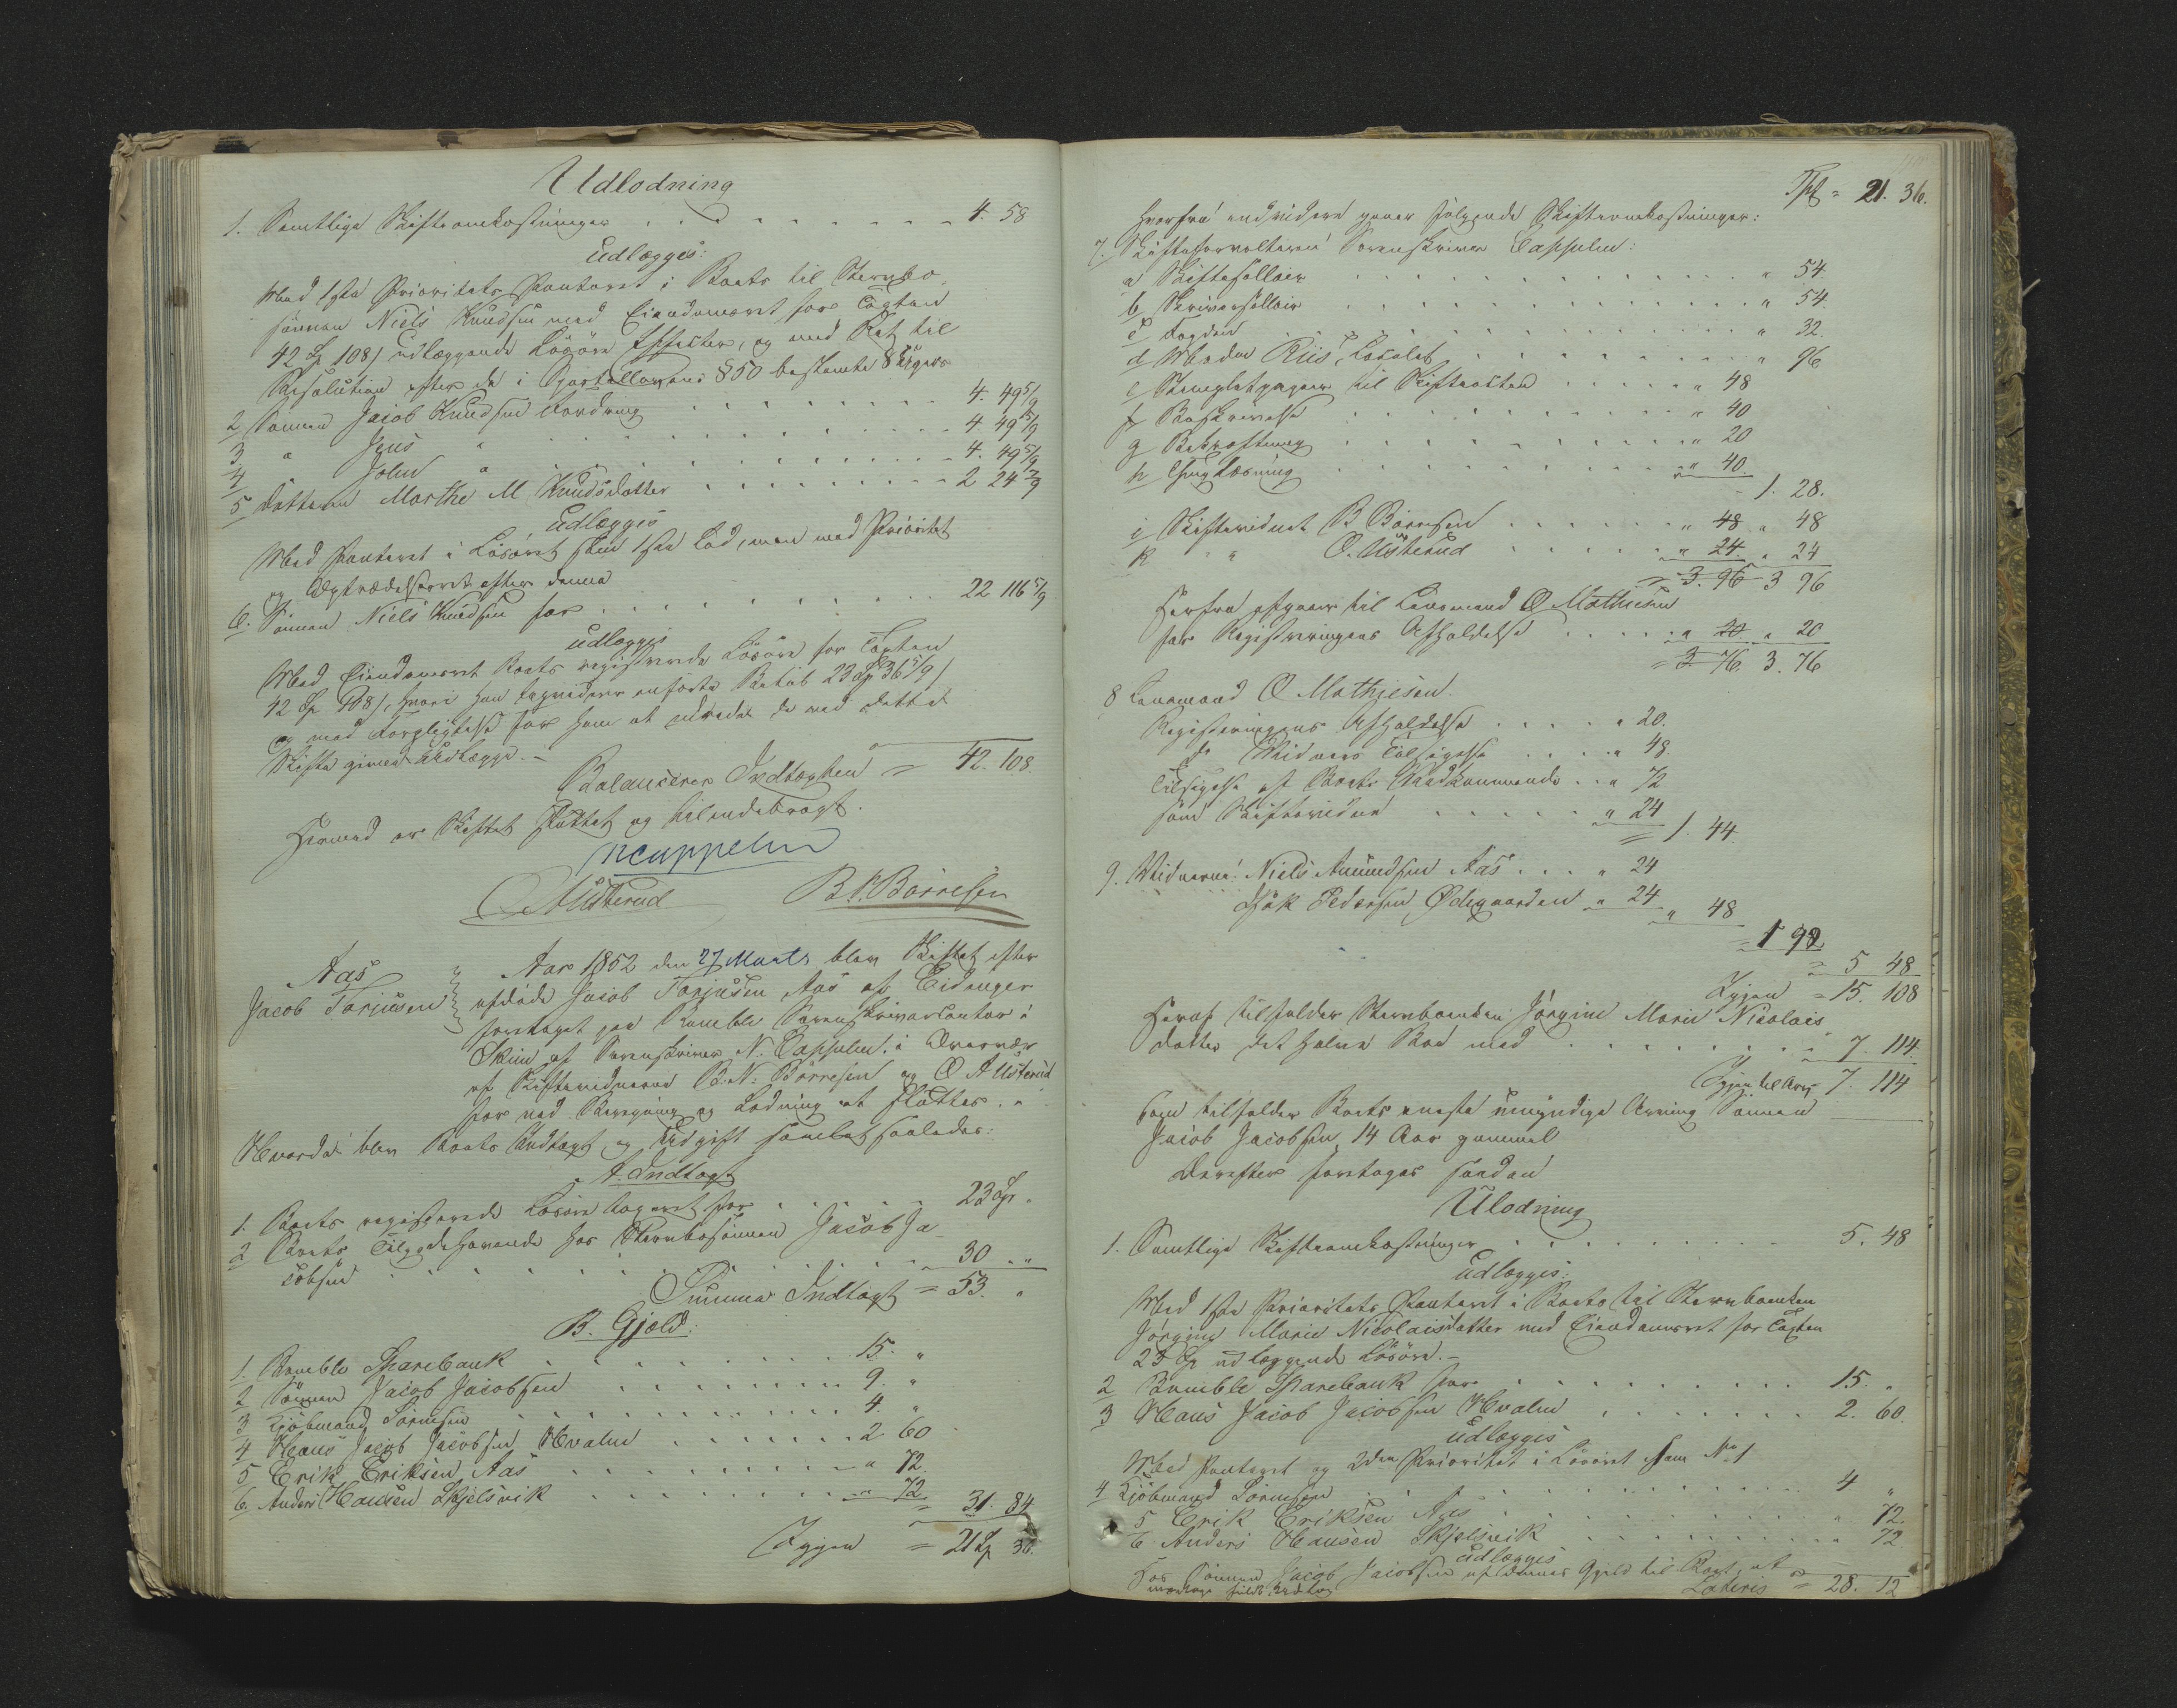 Udlodning
1. Samtlige Skifteomkostninger . . . . . . . 4. 58
Udlægges:
Med 1ste Prioritets Panteret i Boets til Stervbo-
sønnen Niels Knudsen med Eiendomsret for Taxten
42 Sp 108 s udlæggende Løsøre Effecter, og med Ret til
Resolution efter de i Sportellovens § 50 bestemte 8te Dages
2 Sønnen Jacob Knudsen Fordring . . . . . . 4. 49 5/9
3 " Jens " . . . . . . 4. 49 5/9
4 John " . . . . . . 4. 49 5/9
5 Datteren Marthe M Knudsdatter . . . . . . 2 24 7/9
Udlægges
Med Panteret i Løsøret som 1ste Lod, men med Prioritet
og Optrædelsesret efter denne
6. Sønnen Niels Knudsen for . . . . . . 22 116 5/9
udlægges
Med Eiendomsret Boets registrerede Løsøre for Taxten
42 Sp 108 s, hvori han liqviderer anførte Beløb 23 Sp 36 5/9 s
og med Forpligtelse for ham at udrede de ved dette
Skifte givne Udlægge. -
Balancerer Indtægten = 42. 108.
Hermed er Skiftet sluttet og tilendebragt.
NCappelen
OAUsterud B.N.Børresen
Aas
Jacob Torjusen
Aar 1852 den 27 Marts blev Skiftet efter
afdøde Jacob Torjusen Aas af Eidanger
foretaget paa Bamble Sorenskrivercontor i
Skien af Sorenskriver N. Cappelen, i Overvær
af Skiftevidnerne B. N. Børresen og O A Usterud
for ved Beregning og Lodning at sluttes.
Hvorda blev Boets Indtægt og Udgift samlet saaledes:
A. Indtægt
1. Boets registrerede Løsøre bogeret for . . . . . . 23 Sp "
2 Boets Tilgodehavende hos Stervbosønnen Jacob Ja-
cobsen . . . . . . 30 " "
Summa Indtægt = 53. "
B. Gjæld:
1. Bamble Sparebank . . . . . . 15. "
2 Sønnen Jacob Jacobsen . . . . . . 9. "
3 Kjøbmand Sørensen . . . . . . 4. "
4 Hans Jacob Jacobsen Hvalen . . . . . . 2 60
5 Erik Eriksen Aas . . . . . . " 72.
6. Anders Hansen Skjelsvik . . . . . . " 72.
= 31. 84
Igjen = 21 Sp 36.
Tpt = 21. 36.
Hvorfra endvidere gaaer følgende Skifteomkostninger:
7. Skifteforvalteren Sorenskriver Cappelen:
a Skiftesallair . . . . . . " 54.
b Skriversallair . . . . . . " 54
c Fogden . . . . . . " 32.
d Madm Riis, Lokalet . . . . . . " 96
e Stemplet papir til Skifteacten . . . . . " 48
f Beskrivelse . . . . . . " 40
g Bekræftning . . . . . . " 20
h Thinglæsning . . . . . . " 40
1. 28.
i Skiftevidnet B Børresen . . . . . . " 48 " 48
k " " O. Usterud . . . . . " 24. " 24
= 3. 96 3 96
Herfra afgaaer til Lensmand O Mathiesen
for Registreringens Afholdelse . . . . . " 20 " 20
= 3 76. 3. 76
8 Lensmand O Mathiesen.
Registreringens Afholdelse . . . . . " 20.
do Vidners Tilsigelse . . . . " 48
Tilsigelse af Boets Vedkommende . . " 72
som Skiftevidne . . . . . . " 24
= 1. 44.
9. Vidnerne: Niels Amundsen Aas . . . " 24
Isak Pedersen Ødegaarden " 24
" 48
= 1 92
= 5 48
Igjen = 15. 108
Heraf tilfalder Stervboenken Jørgine Marie Nicolais-
datter det halve Boe med . . . . . . 7. 114.
Igjen til Arv 7. 114
som tilfalder Boets eneste umyndige Arving Sønnen
Jacob Jacobsen 14 Aar gammel
Derefter foretoges saadan
Ulodning
1. Samtlige Skifteomkostninger . . . . . . 5. 48
Udlægges:
Med 1ste Prioritets Panteret i Boets til Stervboenken
Jørgine Marie Nicolaisdatter med Eiendomsret for Taxten
23 Sp udlæggende Løsøre. -
2 Bamble Sparebank for . . . . . . 15. "
3 Hans Jacob Jacobsen Hvalen . . . . . . 2. 60.
Udlægges
Med Panteret og 2den Prioritet i Løsøret som No 1
4 Kjøbmand Sørensen . . . . . . 4 "
5 Erik Eriksen Aas . . . . . . " 72.
6 Anders Hansen Skjelsvik . . . . . . " 72
Udlægges
Hos Sønnen Jacob Jacobsen af dennes Gjæld til Boet, at
Lateris = 28. 12